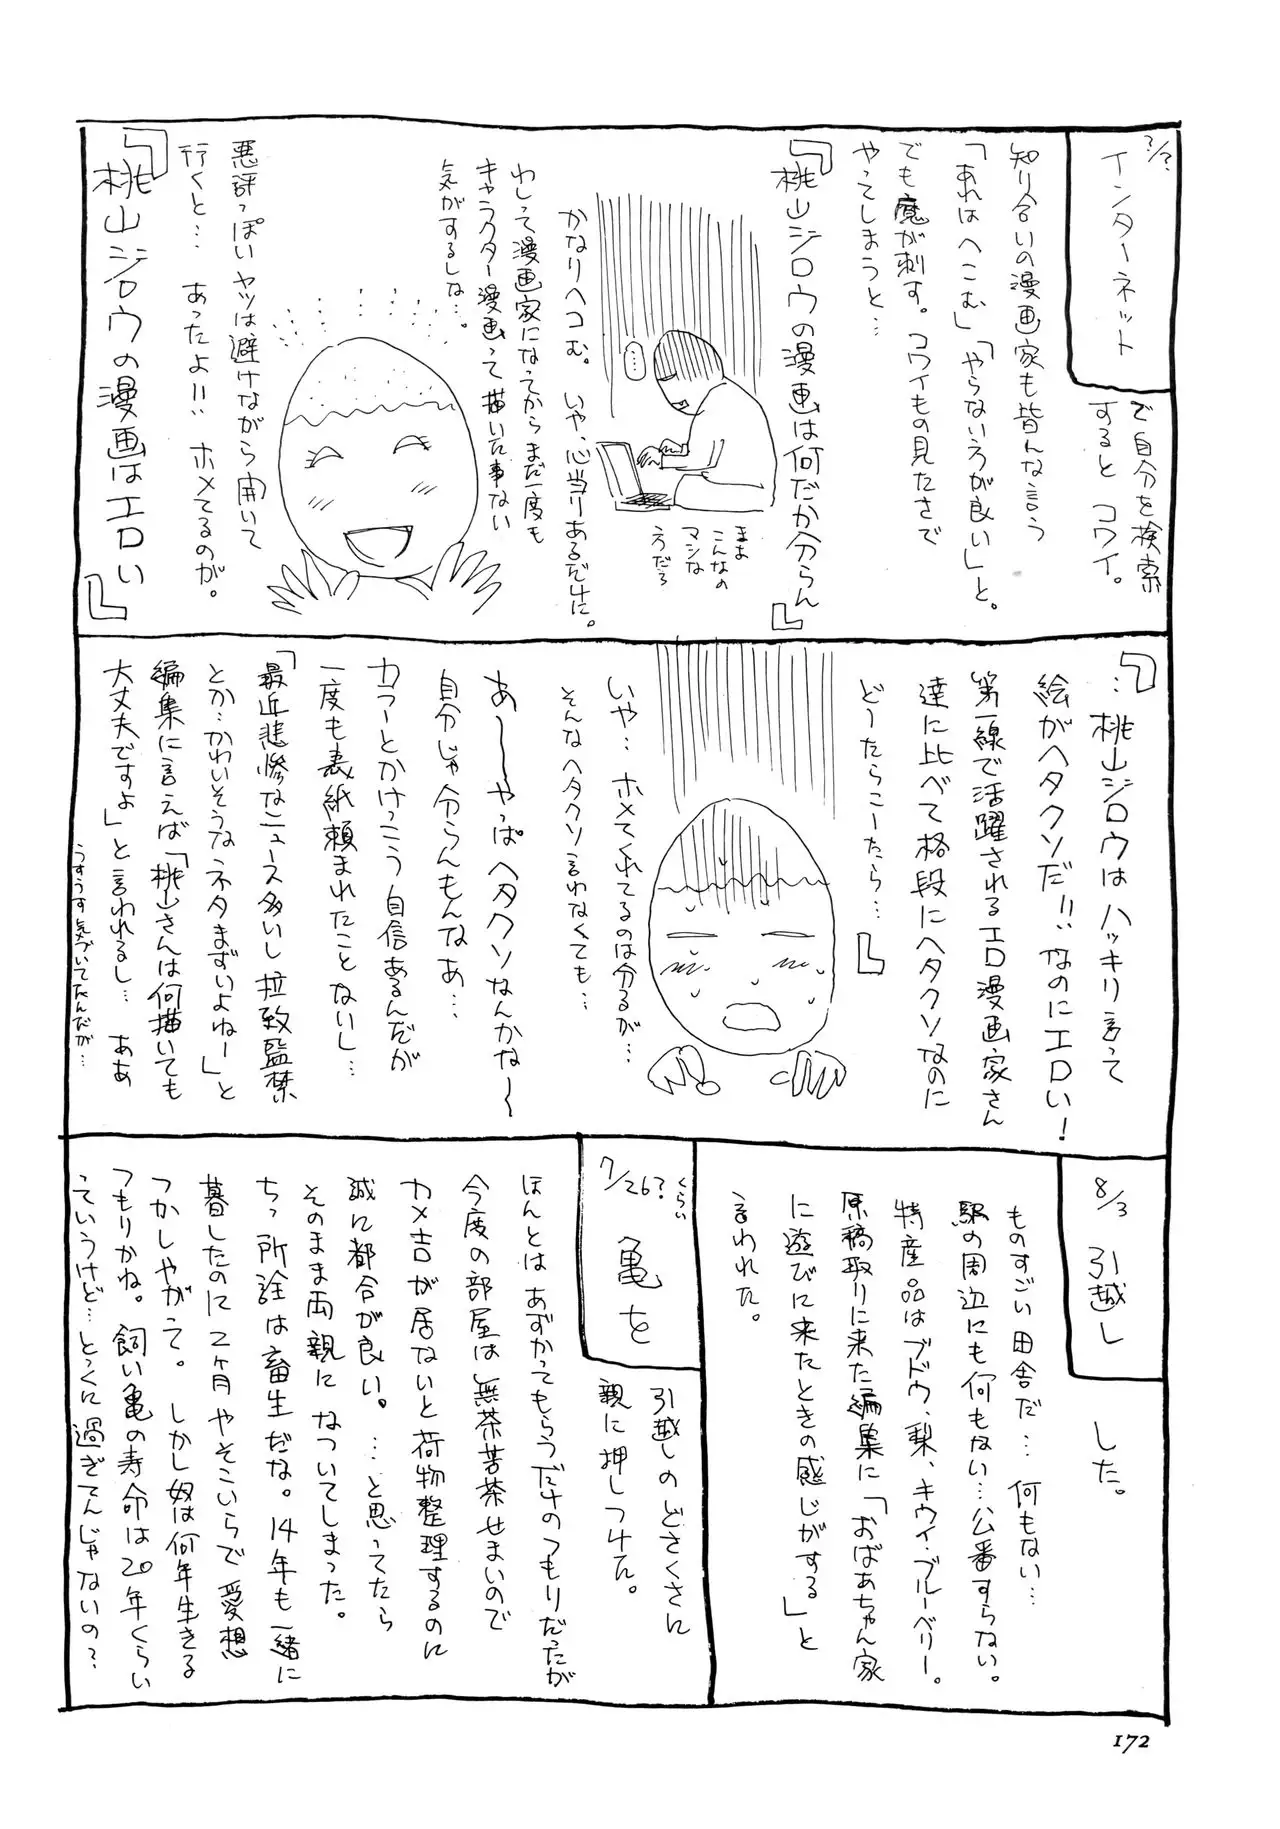 ?/?
インターネット
で自分を検索
すると コワイ。
知り合いの漫画家も皆んな言う
「あれはへこむ」「やらないろが良い」と。
でも魔が刺す。コワイもの見たさで
やってしまうと…
『桃山ジロウの漫画は何だか分らん』
…
まあ
こんなの
マシな
ろだろ
かなりヘコむ。 いや、心当りあるだけに。
わしって漫画家になってからまだ一度も
キャラクター漫画って描いた事ない
気がするしな…。
悪評っぽいヤツは避けながら開いて
行くと… あったよ!! ホメてるのが。
『桃山ジロウの漫画はエロい』
『…桃山ジロウはハッキリ言って
絵がヘタクソだ!! なのにエロい!
第一線で活躍されるエロ漫画家さん
達に比べて格段にヘタクソなのに
どーたらこーたら…』
いや… ホメてくれてるのは分るが…
そんなヘタクソ言わなくても…
あ〜〜やっぱヘタクソなんかな〜
自分じゃ分らんもんなあ…
カラーとかけっこう自信あるんだが
一度も表紙頼まれたことないし…
「最近悲惨なニュース多いし拉致監禁
とか…かわいそうなネタまずいよねー」と
編集に言えば「桃山さんは何描いても
大丈夫ですよ」と言われるし… ああ
うすうす気づいてたんだが…
8/3 引越し
した。
ものすごい田舎だ… 何もない…
駅の周辺にも何もない…公番すらない。
特産品はブドウ、梨、キウイ・ブルーベリー。
原稿取りに来た編集に「おばあちゃん家
に遊びに来たときの感じがする」と
言われた。
7/26?くらい
亀を
引越しのどさくさに
親に押しつけた。
ほんとはあずかってもらうだけのつもりだったが
今度の部屋は無茶苦茶せまいので
カメ吉が居ないと荷物整理するのに
誠に都合が良い。…と思ってたら
そのまま両親になついてしまった。
ちっ所詮は畜生だな。14年も一緒に
暮したのに2ヶ月やそこいらで愛想
つかしやがって。しかし奴は何年生きる
つもりかね。飼い亀の寿命は20年くらい
っていうけど…とっくに過ぎてんじゃないの?
172